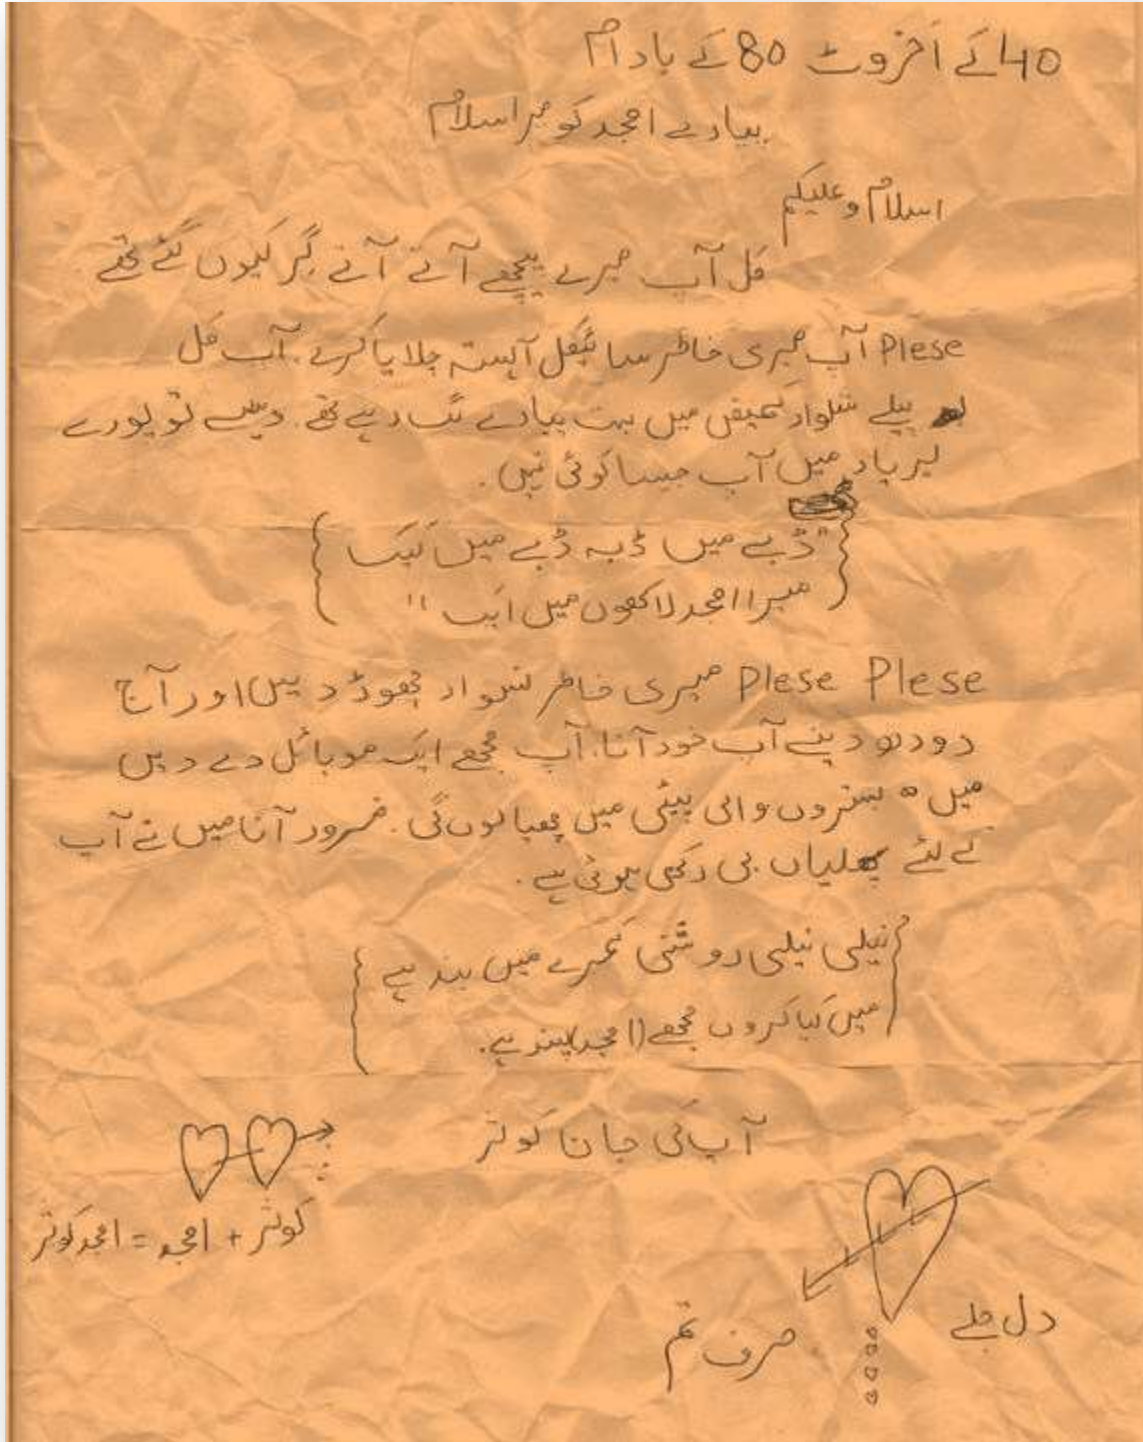 40 کے آخروٹ 80 کے بادام
پیارے امجد کو میرا سلام
اسلام و علیکم
کل آپ میرے پیچھے آتے آتے گر کیوں گئے تھے
Plese آپ میری خاطر سائیکل آہستہ چلایا کرے. آپ کل
پیلے شلوار کمیض میں بہت پیارے لگ رہے تھے. ویسے تو پورے
میں آپ جیسا کوئی نہیں.
"ڈبے میں ڈبہ ڈبے میں کیک
میرا امجد لاکھوں میں ایک"
Plese Plese میری خاطر نسوار چھوڑ دیں اور آج
دودھ دینے آپ خود آنا. آپ مجھے ایک موبائل دے دیں
میں بستروں والی پیٹی میں چھپا لوں گی. ضرور آنا میں نے آپ
کے لئے پھلیاں بی رکھی ہوئی ہے.
نیلی نیلی روشنی کمرے میں بند ہے
میں کیا کروں مجھے (امجد) پسند ہے.
آپ کی جان کوثر
کوثر + امجد = امجد کوثر
دل جلے
صرف تم